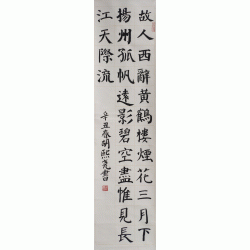 故人西辭黃鶴樓煙花三月下
揚州孤帆遠影碧空盡惟見長
江天際流
辛丑春胡熙堯書